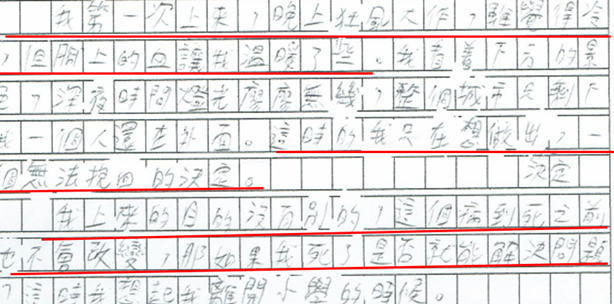 我第一次上來,晚上狂風大作,雖覺得冷
,但關上的血讓我溫暖了些。我看着下方的景
色,深夜時間燈光寥寥無幾,整個城市只剩下
我一個人還在外面。這時的我只在想做出,一
個無法挽回的決定。 決定
我上來的目的沒有別的,這個病到死之前
也不會改變,那如果我死了是否就能解決問題
?這時我想起我離開小學的時候。